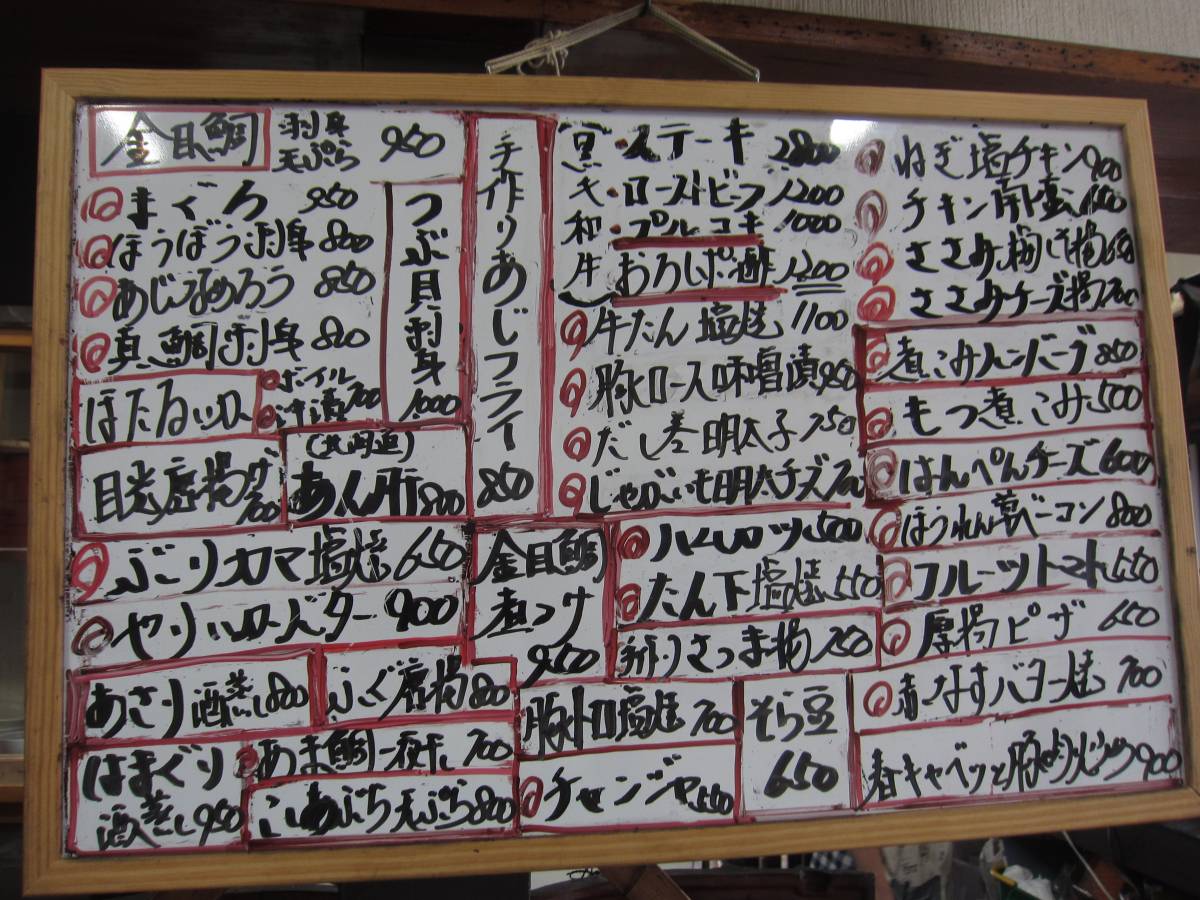 金目鯛 刺身 天ぷら 950
まぐろ 950
ほうぼう刺身 800
あじなめろう 850
真鯛刺身 820
つぶ貝刺身 1000
ほたるいか
ボイル
沖漬 700
目光唐揚げ 700
あん肝 800
ぶりカマ塩焼 650
やりいかバター 900
あさり酒蒸し 800
ふぐ唐揚 800
はまぐり
酒蒸し 950
あま鯛一夜干し 700
こしあぶら天ぷら 800
手作りあじフライ 850
金目鯛
煮つけ
950
黒毛和牛
・ステーキ 2800
・ローストビーフ 1200
・プルコギ 1000
おろしポン酢 1200
牛たん塩焼 1100
豚ロース味噌漬 950
だし巻明太子 750
じゃがいも明太チーズ 700
ハムカツ 500
たん下塩焼 550
手作りさつま揚 750
豚トロ塩焼 700
チャンジャ 550
そら豆
650
ねぎ塩チキン 900
チキン南蛮
ささみ梅しそ揚 650
ささみチーズ揚 700
煮こみハンバーグ 850
もつ煮こみ 500
はんぺんチーズ 600
ほうれん草ベーコン 800
フルーツトマト 550
厚揚ピザ 650
青なすバター焼 700
春キャベツと豚肉炒め 900